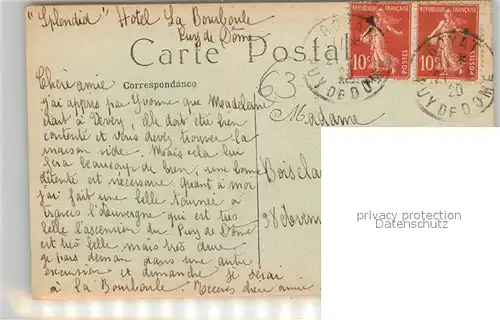 "Splendid" Hotel La Bourboule
Puy de Dôme
Carte Postale
RÉPUBLIQUE FRANÇAISE
10c POSTES
RÉPUBLIQUE FRANÇAISE
10c POSTES
PUY DE DOME
20
PUY DE DOME
63
Correspondance
Chere amie
j'ai appris par Yvonne que Madeleine
était à Vevey, elle doit être bien
contente et vous devez trouver la
maison vide. Mais cela lui
fera beaucoup de bien, une bonne
détente est nécessaire. Quant à moi
j'ai fait une belle tournée à
travers l'Auvergne qui est très
belle l'ascension du Puy de Dôme
est très belle mais très dure
je pars demain dans une autre
excursion et dimanche je serai
à La Bourboule. Recevez chère amie
Madame
Bois
98
privacy protection
Datenschutz